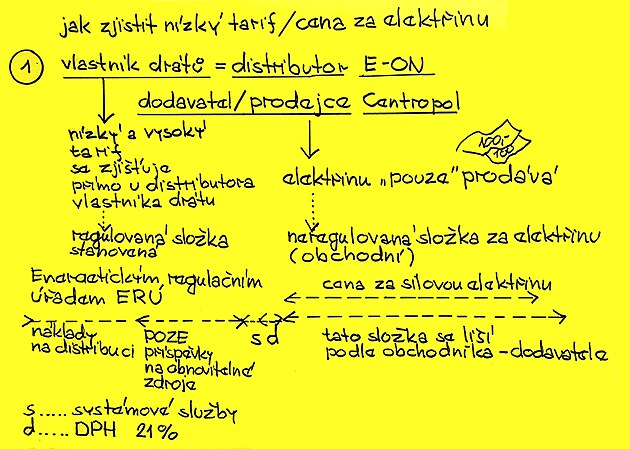 jak zjistit nízký tarif/cena za elektřinu
1 vlastník drátů = distributor E-ON
dodavatel/prodejce Centropol
nízký a vysoký
tarif
se zjišťuje
přímo u distributora
vlastníka drátu
1000,-
100
elektřinu „pouze" prodává
regulovaná složka
stanovená
Energetickým regulačním
úřadem ERÚ
neregulovaná složka za elektřinu
(obchodní)
cena za silovou elektřinu
náklady
na distribuci
POZE
příspěvky
na obnovitelné
zdroje
s d
tato složka se liší
podle obchodníka - dodavatele
s..... systémové služby
d.... DPH 21%